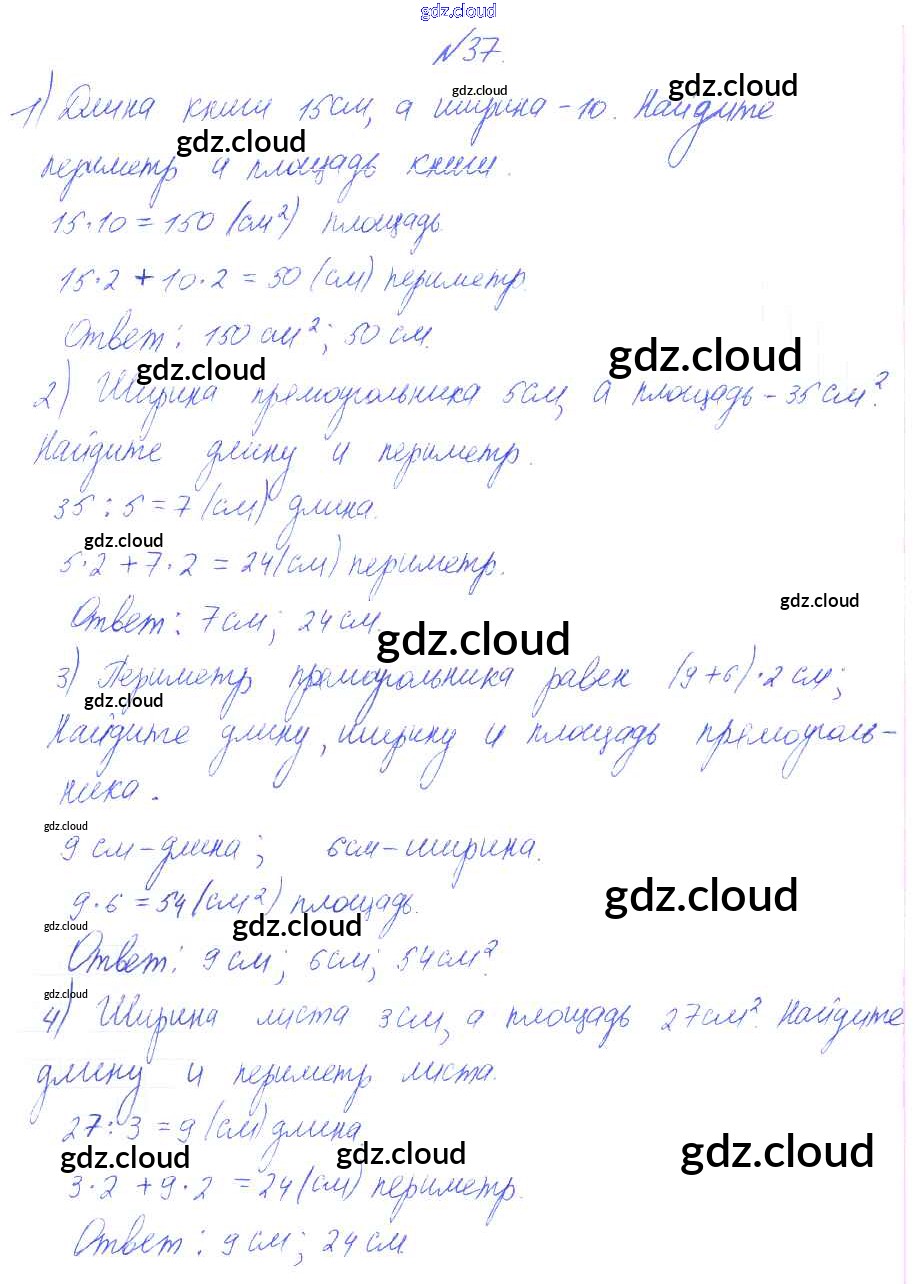 gdz.cloud
№37.
gdz.cloud
gdz.cloud
1) Длина книги 15см, а ширина - 10. Найдите
gdz.cloud
периметр и площадь книги.
15·10 = 150 (см²) площадь
15·2 + 10·2 = 50 (см) периметр.
Ответ: 150 см²; 50 см.
gdz.cloud
gdz.cloud
2) Ширина прямоугольника 5см, а площадь - 35 см².
Найдите длину и периметр.
35 : 5 = 7 (см) длина.
gdz.cloud
5·2 + 7·2 = 24 (см) периметр.
gdz.cloud
Ответ: 7см; 24 см
gdz.cloud
3) Периметр прямоугольника равен (9+6)·2 см;
gdz.cloud
Найдите длину, ширину и площадь прямоуголь-
ника.
gdz.cloud
9 см - длина; 6см - ширина.
gdz.cloud
9·6 = 54 (см²) площадь.
gdz.cloud
gdz.cloud
Ответ: 9 см; 6см; 54 см².
gdz.cloud
4) Ширина листа 3см, а площадь 27см². Найдите
длину и периметр листа.
27 : 3 = 9 (см) длина
gdz.cloud
gdz.cloud
gdz.cloud
3·2 + 9·2 = 24 (см) периметр.
Ответ: 9 см; 24 см